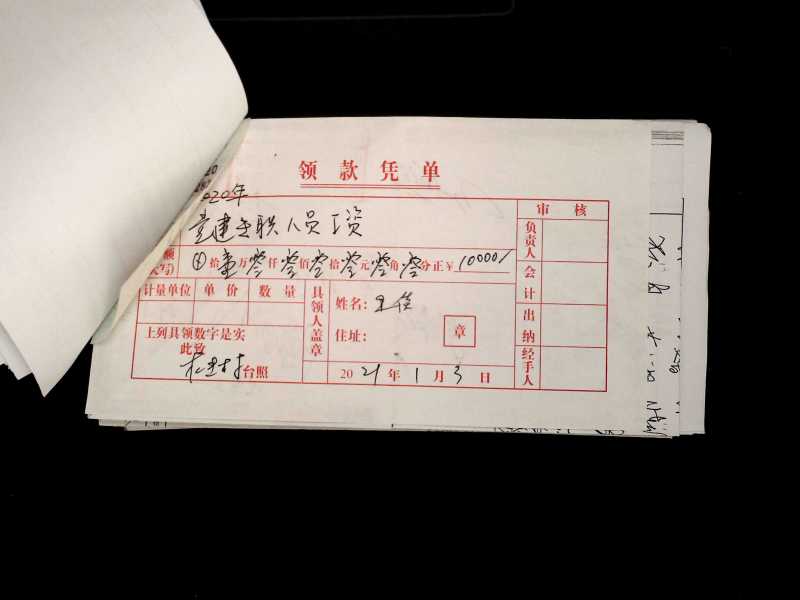 领款凭单
020年
党建专职人员工资
额
大写)
⊕拾壹万零仟零佰零拾零元零角零分正¥10000/
审核
负责人
会计
出纳
经手人
计量单位 单价 数量
具领人盖章
姓名:
住址:
章
上列具领数字是实
此致
台照
2021年1月3日